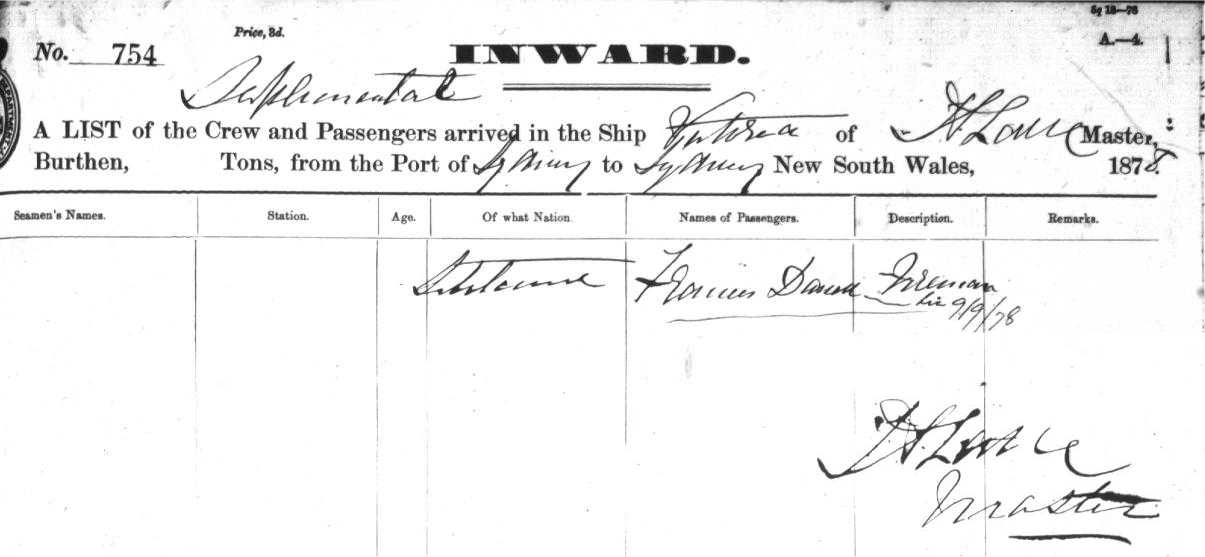 5q 18—78
Price, 3d.
No. 754 INWARD. A.—4.
Suplemental
A LIST of the Crew and Passengers arrived in the Ship Victoria of Master,
Burthen, Tons, from the Port of Sydney to Sydney New South Wales, 1878.
Seamen's Names. Station. Age. Of what Nation Names of Passengers. Description. Remarks.
Francis
9/9/78
Master